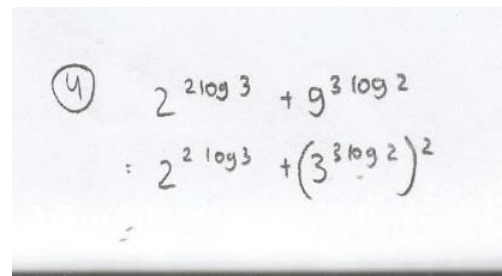 ④ 2^{2 log 3} + 9^{3 log 2}
: 2^{2 log 3} + (3^{3 log 2})^2
=